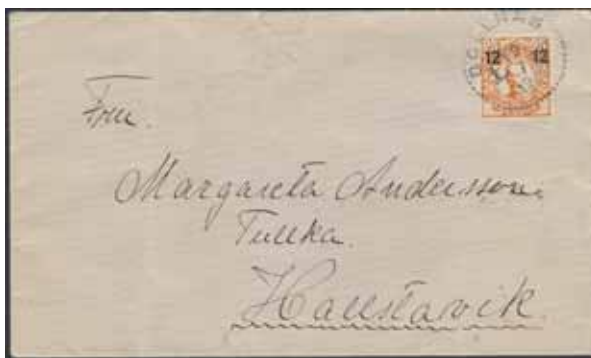 12 12
Fru.
Margareta Andersson.
Tulka.
Hallstavik.